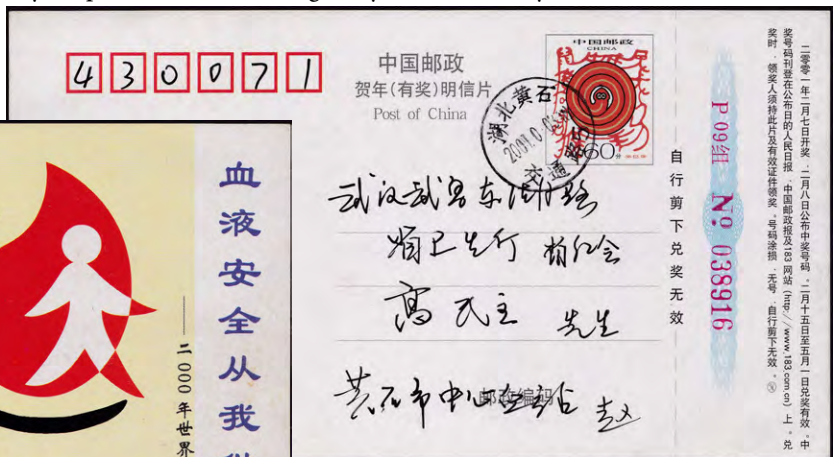 430071
中国邮政
贺年(有奖)明信片
Post of China
中国邮政
CHINA
60分
湖北黄石
交通路
武汉武昌东湖路
省卫生厅 省红会
高民主 先生
邮政编码
黄石市中心血站 赵
自行剪下兑奖无效
P 09组 Nº 038916
二零零一年二月七日开奖,二月八日公布中奖号码,二月十五日至五月一日兑奖有效。中
奖号码刊登在公布日的人民日报、中国邮政报及183网站(http://www.183.com.cn)上。兑
奖时,领奖人须持此片及有效证件领奖。号码涂损、无号、自行剪下无效。
血液安全从我
——二000年世界